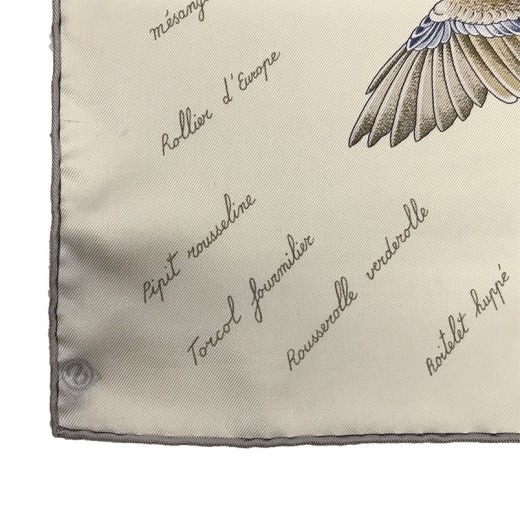 mésang
Rollier d'Europe
Pipit rousseline
Torcol fourmilier
Rousserolle verderolle
Roitelet huppé